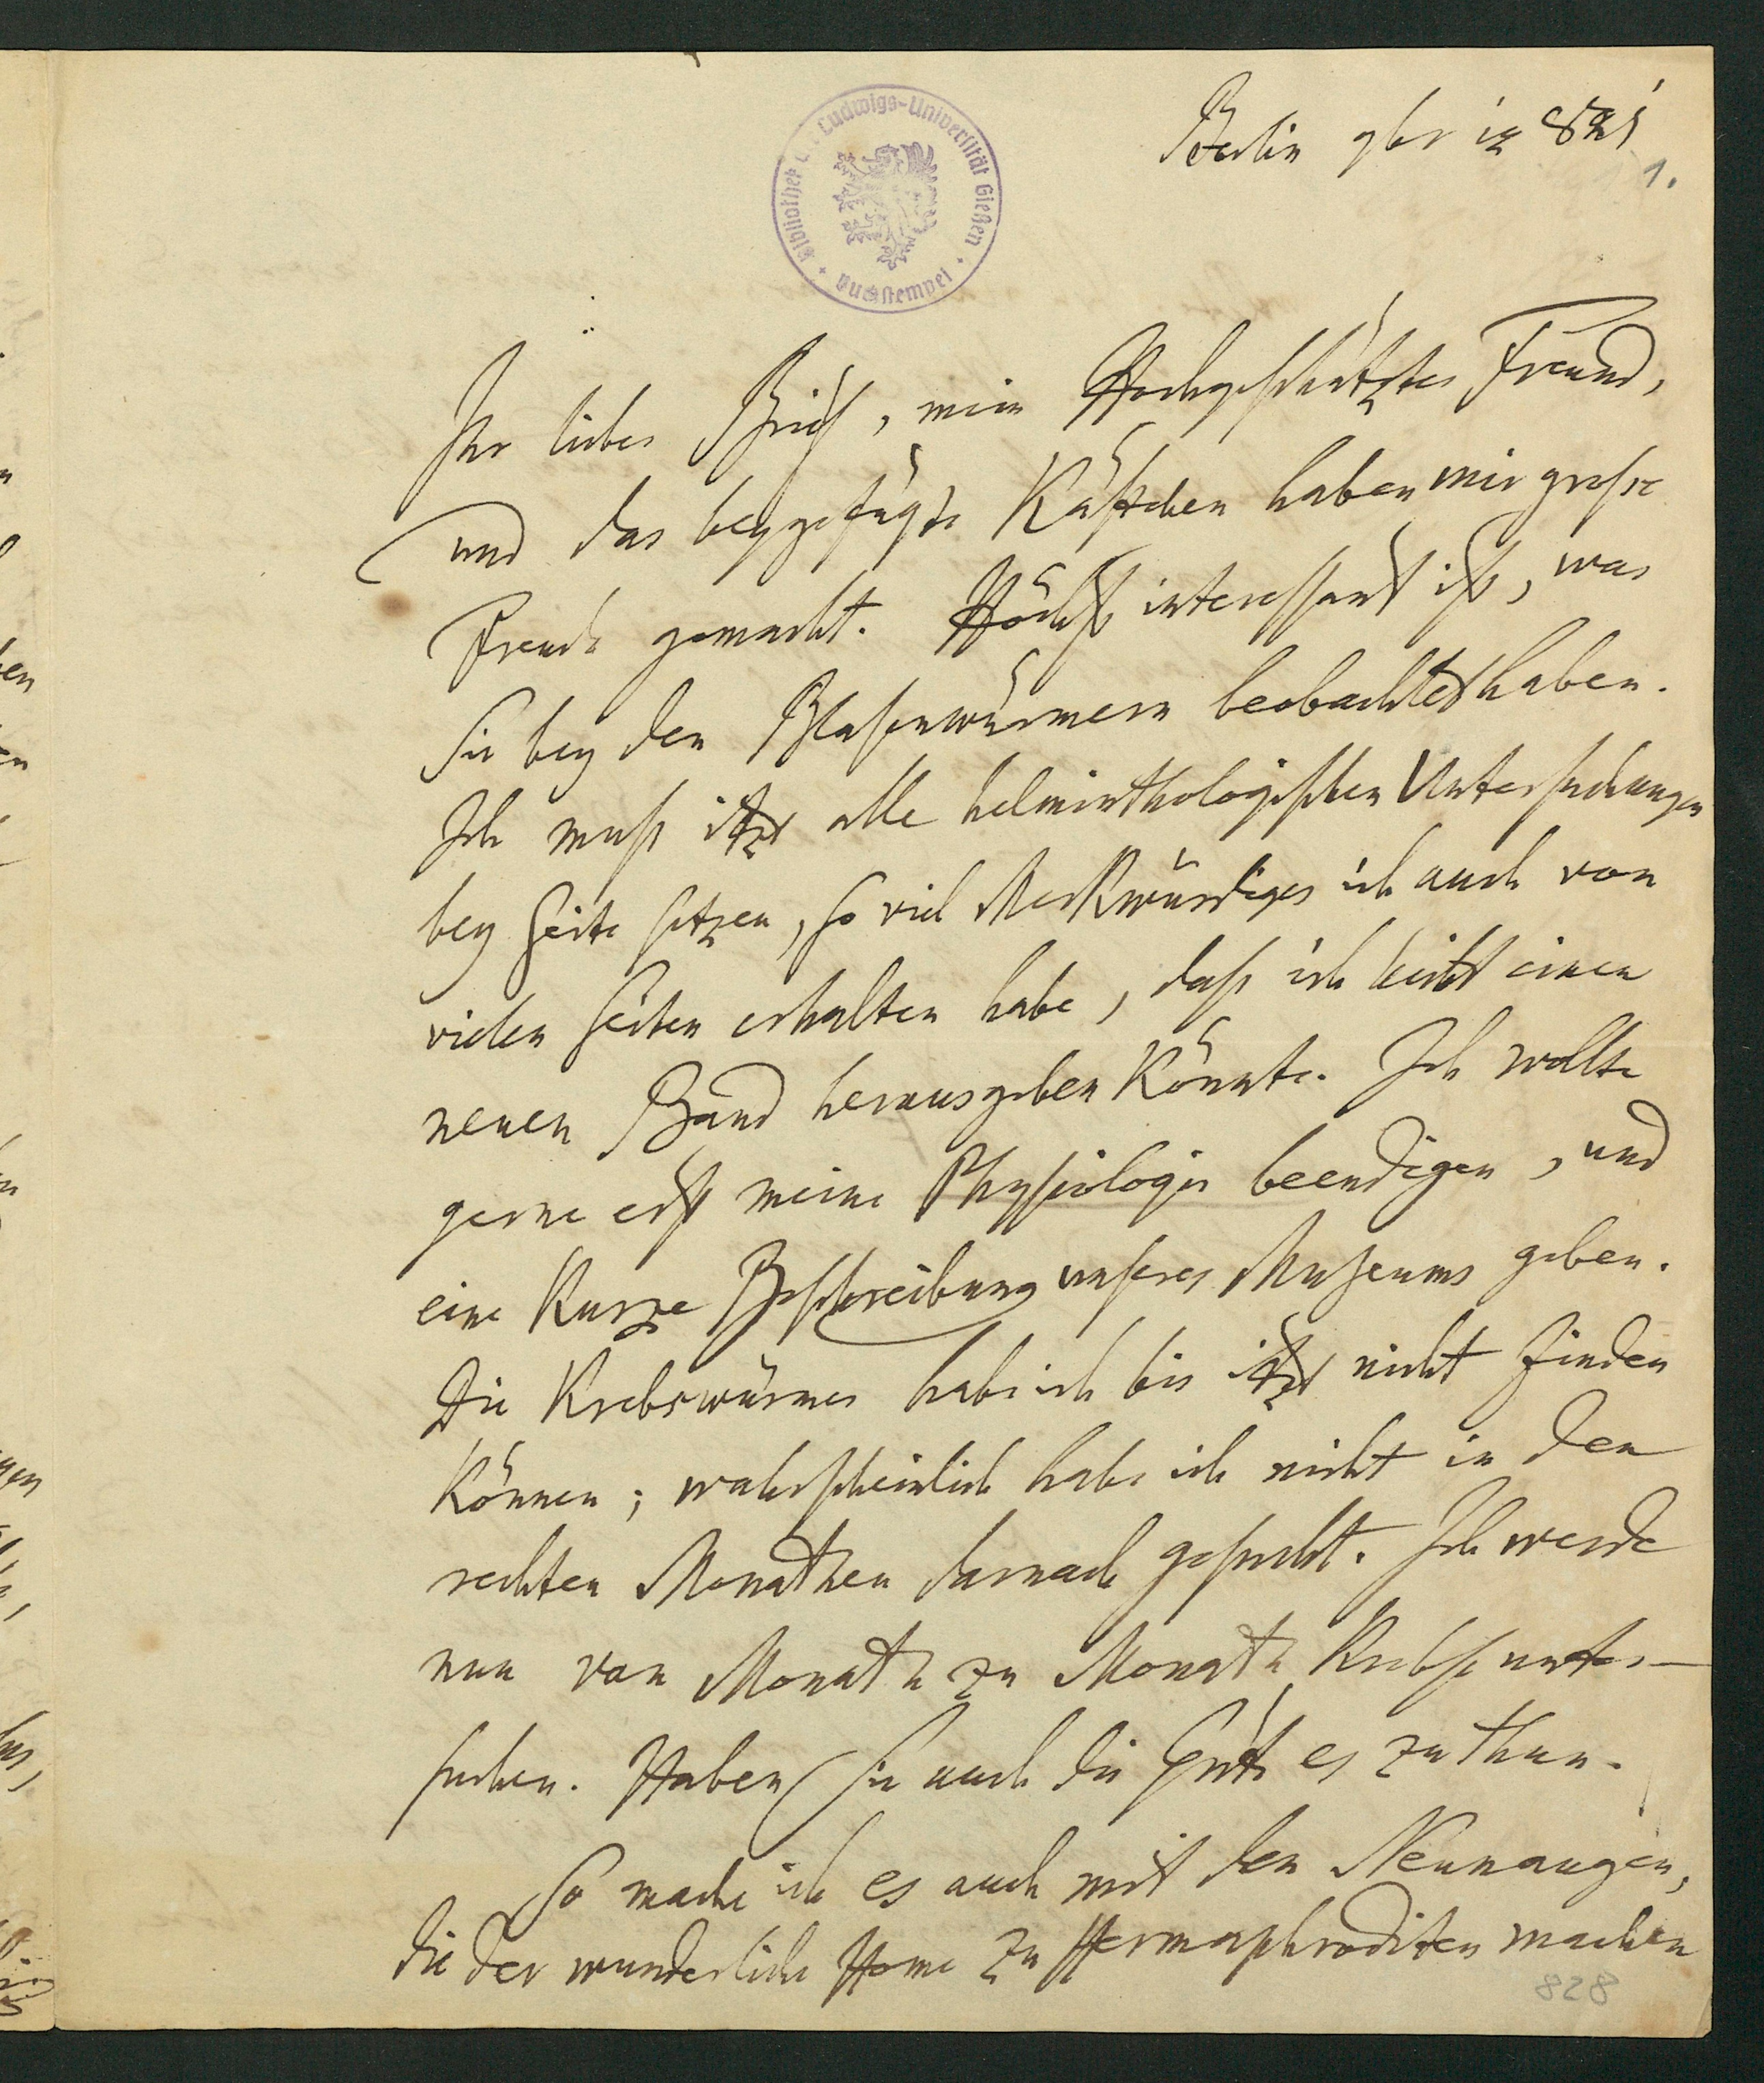 Berlin 9br 12 821
1.
Bibliothek d. Ludwigs-Universität Gießen
Buchstempel
Ihr lieber Brief, mein Hochgeschätzter Freund,
und das beygefügte Kästchen haben mir große
Freude gemacht. Höchst interessant ist, was
Sie bey den Blasenwürmern beobachtet haben.
Ich muß itzt alle helminthologischen Untersuchungen
bey Seite setzen, so viel Merkwürdiges ich auch von
vielen Seiten erhalten habe, daß ich leicht einen
neuen Band herausgeben könnte. Ich wollte
gerne erst meine Physiologie beendigen, und
eine kurze Beschreibung unseres Museums geben.
Die Krebswürmer habe ich bis itzt nicht finden
können; wahrscheinlich habe ich nicht in den
rechten Monathen darnach gesucht. Ich werde
nun von Monath zu Monath Krebse unter-
suchen. Haben Sie auch die Güte es zu thun.
So mache ich es auch mit den Neunaugen,
die der wunderliche Home zu Hermaphroditen machen
828